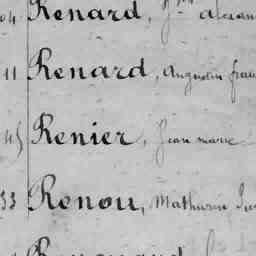 04 Renard, J.n
11 Renard, Augustin
45 Renier, Jean marie
33 Renou, Mathurin